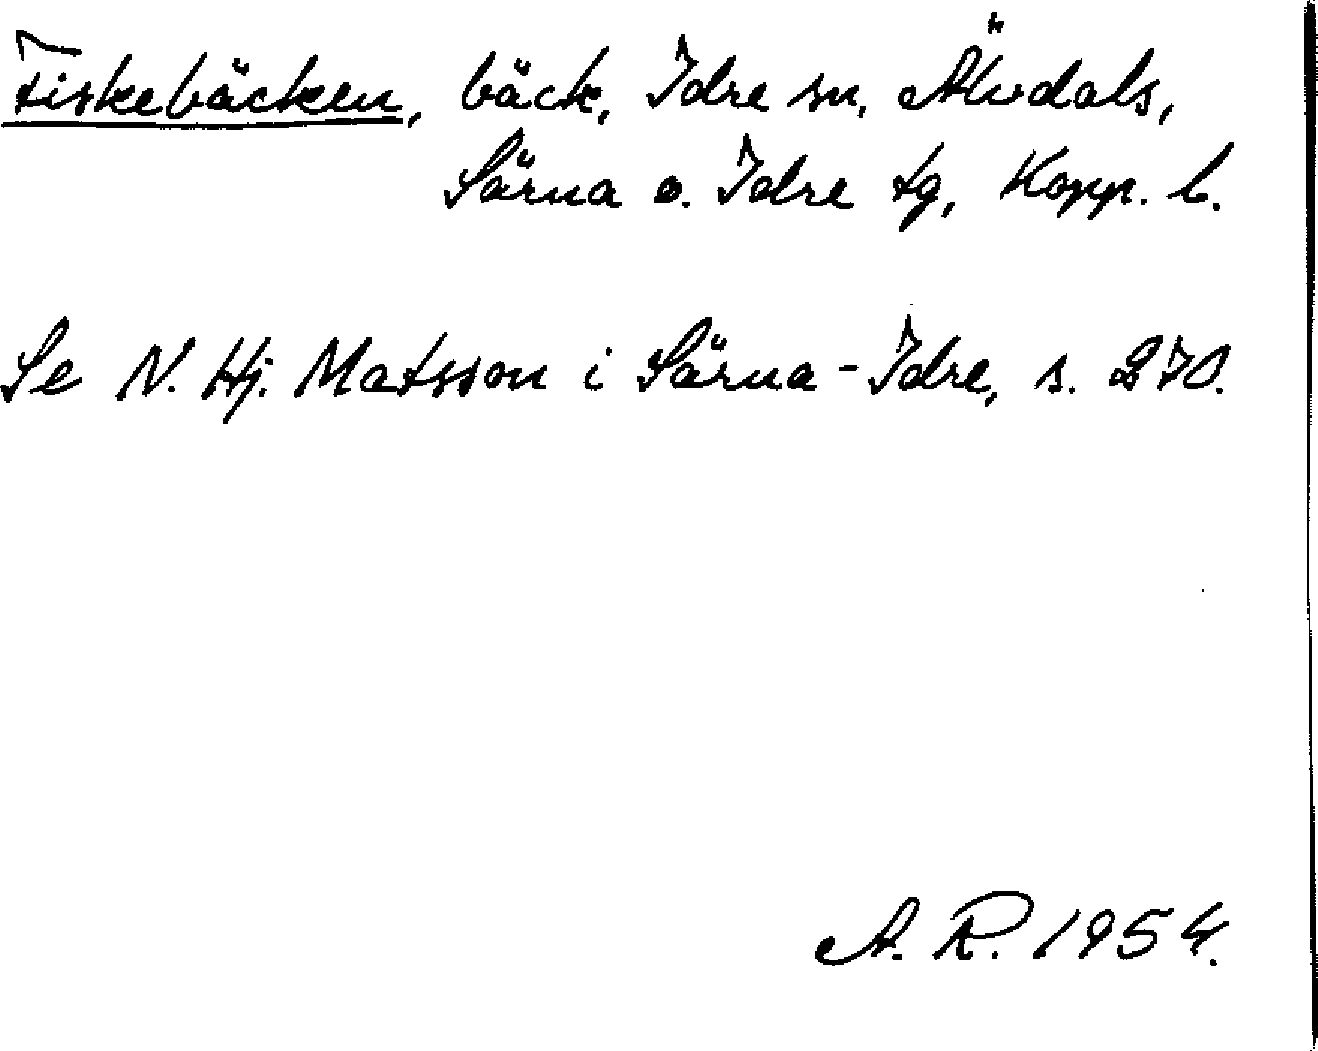 Fiskebäcken, bäck, Idre sn, Älvdals,
Särna o. Idre tg, Kopp. l.
Se N. Hj. Matsson i Särna-Idre, s. 270.
A. R. 1954.